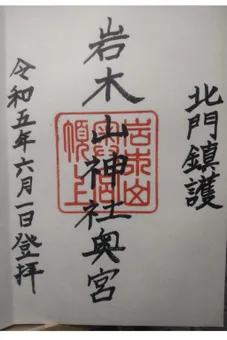 北門鎮護
岩木山神社奥宮
岩木山
奥宮
頂上
令和五年六月一日登拝